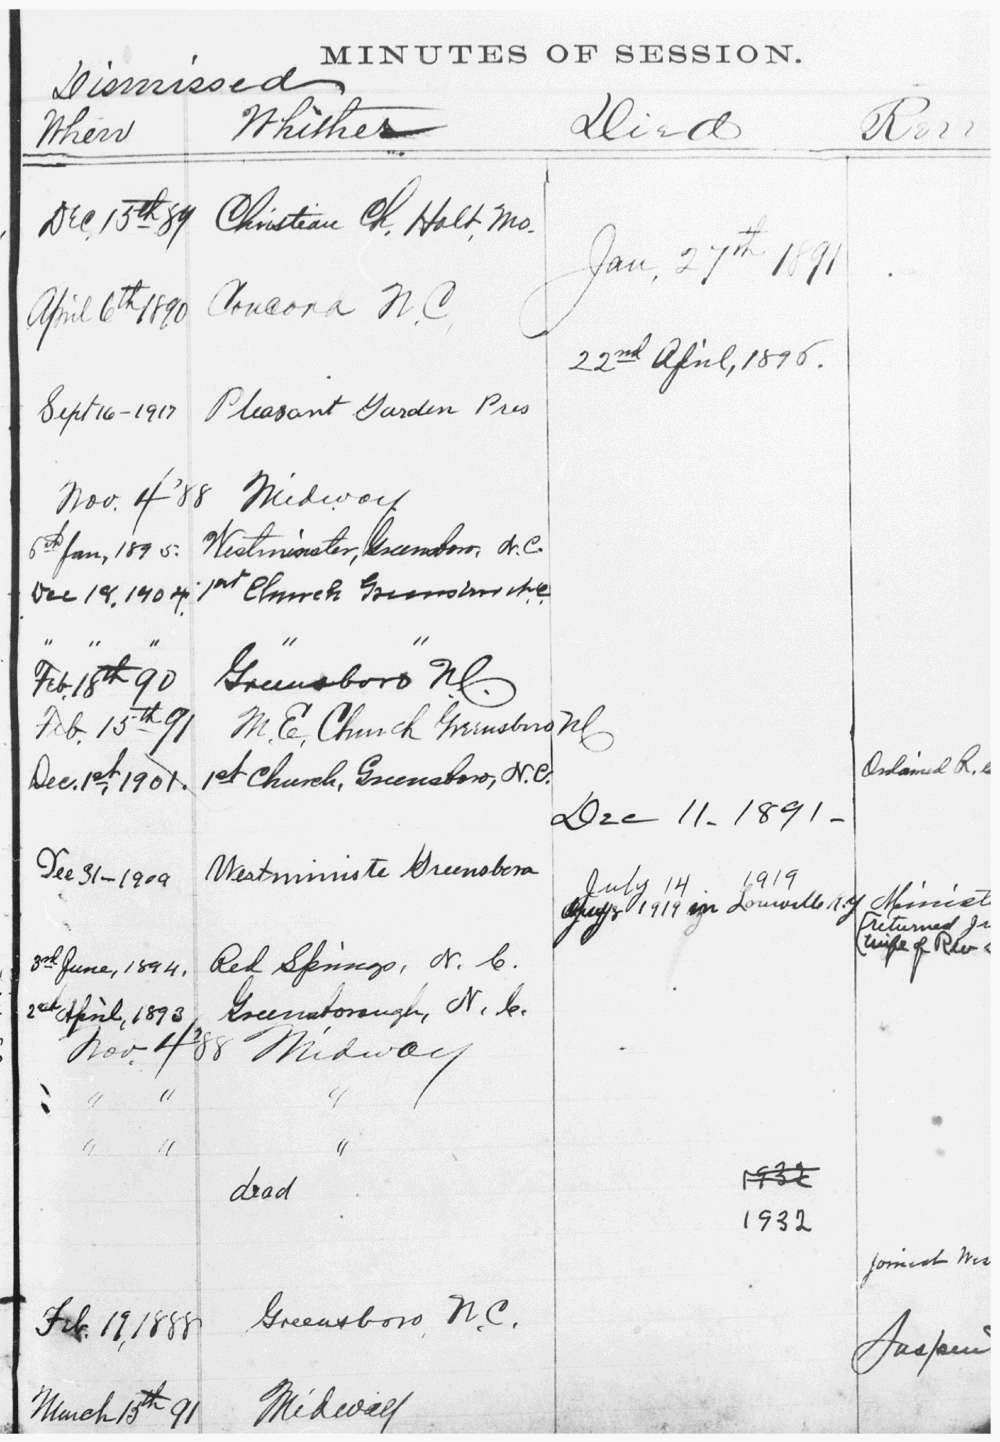 MINUTES OF SESSION.
Dismissed
When Whither Died
Dec. 15th 89 Christian Ch. Holt, Mo.
Jan. 27th 1891
April 6th 1890 Concord N.C.
22nd April, 1896.
Sept 16-1917 Pleasant Garden Pres
Nov. 4 '88 Midway
Jan, 1895. Westminster, Greensboro, N.C.
Dec 18, 1904. 1st Church Greensboro N.C.
" " " " "
Feb. 18th 90 Greensboro N.C.
Feb. 15th 91 M.E. Church Greensboro NC
Dec. 1st, 1901. 1st Church, Greensboro, N.C. Ordained R.
Dec 11- 1891-
Dec 31-1909 Westministe Greensboro
July 14 1919
1919 in Louisville Ky Minist
(returned
(wife of Rev
3rd June, 1894. Red Springs, N.C.
2nd April, 1893 Greensborough, N.C.
Nov. 4 '88 Midway
" " "
" " "
dead 1932
1932
joined Wes
Feb. 19, 1888 Greensboro, N.C.
Suspen
March 15th 91 Midway